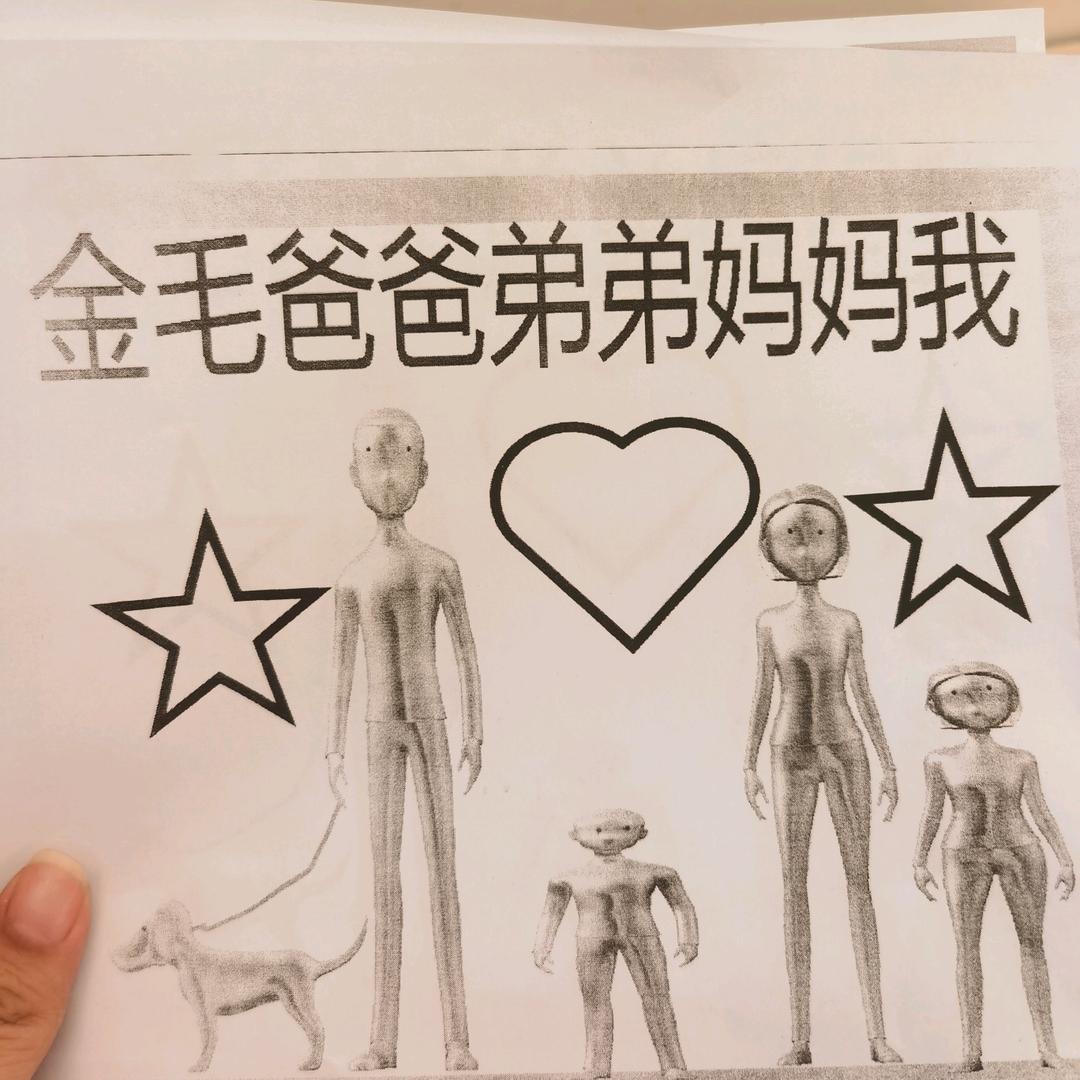 金毛爸爸弟弟妈妈我